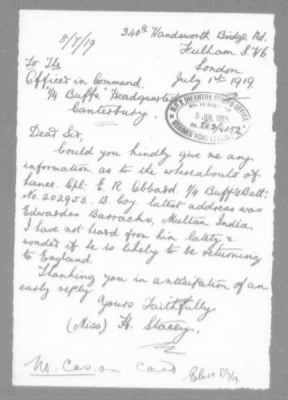 8/7/19
240a Wandsworth Bridge Rd.
Fulham S.W.6
London.
July 1st 1919.
To The
Officer in Command.
1/4 Buffs Headquarters
Canterbury.
INFANTRY RECORD OFFICE
5 JUL 1919
Dear Sir,
Could you kindly give me any
information as to the whereabouts of
Lance. Cpl: E R Obbard 1/4 Buffs Batt:
No. 202953. B. Coy. latest address was
Edwardes Barracks, Multan India.
I have not heard from him lately &
wonder if he is likely to be returning
to England.
Thanking you in anticipation of an
early reply
Yours Faithfully
(Miss) H. Stacey.
No. Cas. on Card
8/7/19.